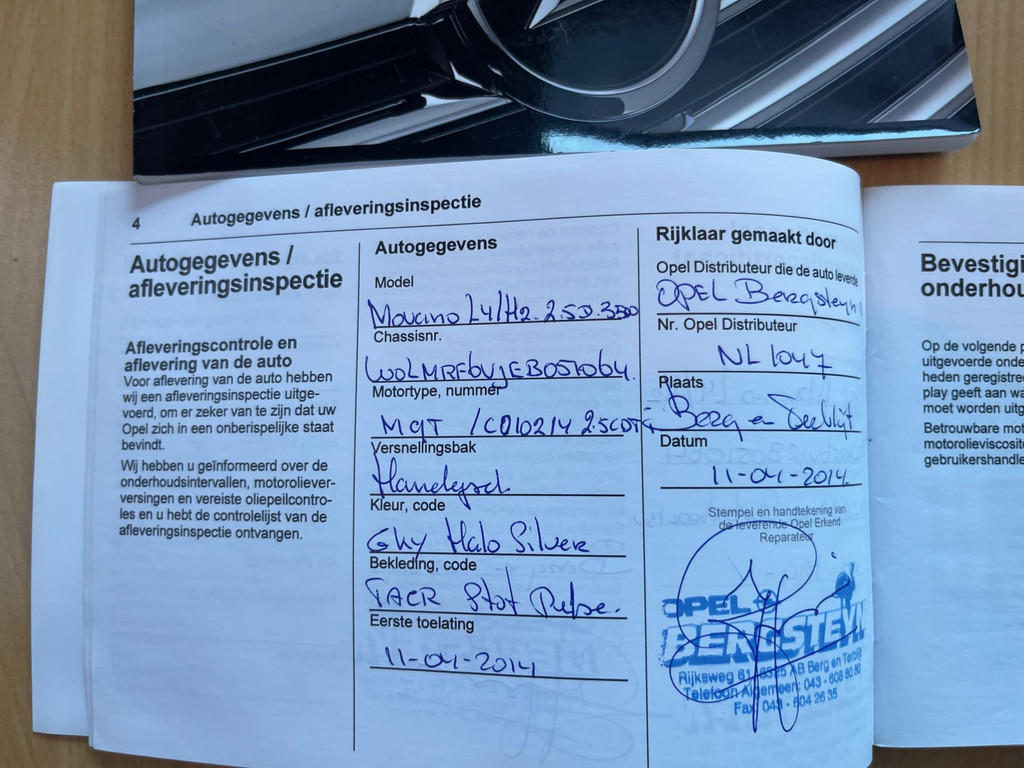 4 Autogegevens / afleveringsinspectie
Autogegevens /
afleveringsinspectie
Afleveringscontrole en
aflevering van de auto
Voor aflevering van de auto hebben
wij een afleveringsinspectie uitge-
voerd, om er zeker van te zijn dat uw
Opel zich in een onberispelijke staat
bevindt.
Wij hebben u geïnformeerd over de
onderhoudsintervallen, motoroliever-
versingen en vereiste oliepeilcontro-
les en u hebt de controlelijst van de
afleveringsinspectie ontvangen.
Autogegevens
Model
Movano L4/H2 2.5D.350
Chassisnr.
Motortype, nummer
M9T /C010214
Versnellingsbak
Handgesch.
Kleur, code
GHY Halo Silver
Bekleding, code
TACR Stof
Eerste toelating
11-04-2014
Rijklaar gemaakt door
Opel Distributeur die de auto leverde
OPEL Bergsteyn
Nr. Opel Distributeur
NL1047
Plaats
Berg en Terblijt
Datum
11-04-2014
Stempel en handtekening van
de leverende Opel Erkend
Reparateur
OPEL
BERGSTEYN
Rijksweg 61, 6325 AB Berg en Terblijt
Telefoon Algemeen: 043 - 608 80 80
Fax 043 - 604 26 35
Bevestigi
onderhou
Op de volgende p
uitgevoerde onder
heden geregistree
play geeft aan wa
moet worden uitg
Betrouwbare mot
motorolieviscosite
gebruikershandle